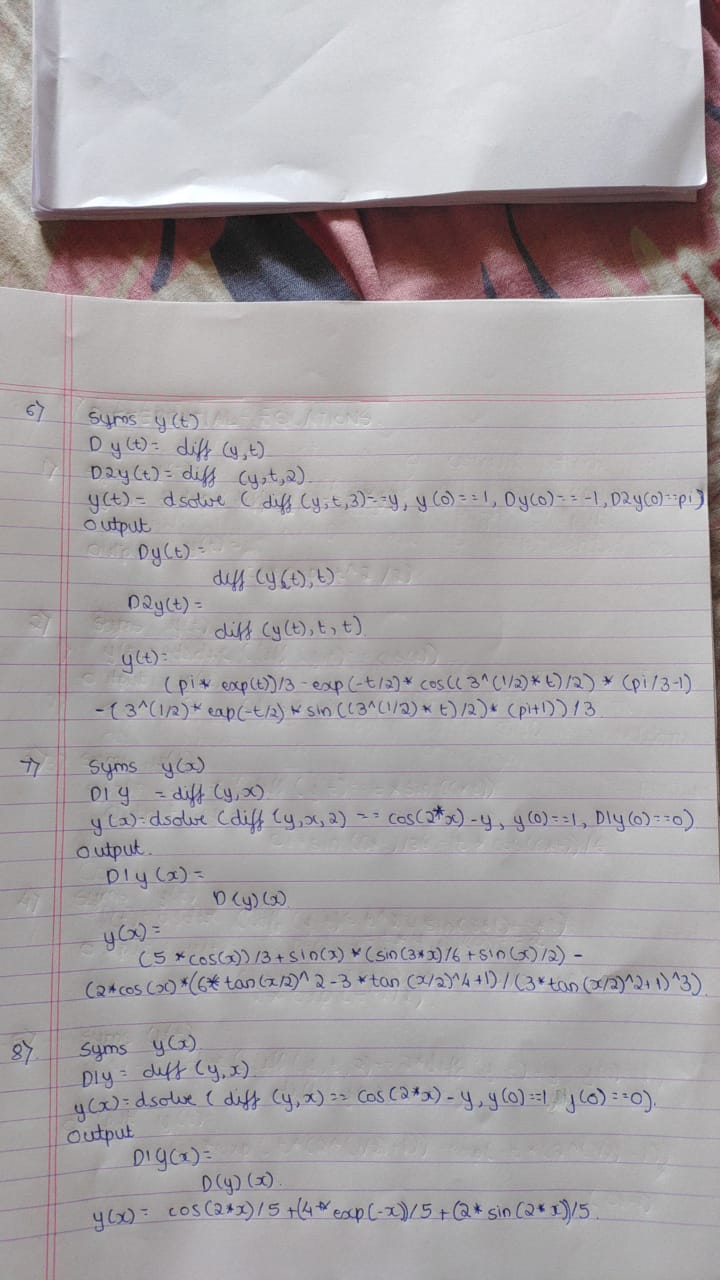 6)
Syms y(t)
Dy(t)= diff (y,t)
D2y(t)= diff (y,t,2).
y(t)= dsolve ( diff (y,t,3)==y, y(0)==1, Dy(0)==-1, D2y(0)==pi)
Output
Dy(t)=
diff (y(t),t)
D2y(t)=
diff (y(t),t,t)
y(t)=
(pi* exp(t))/3 -exp(-t/2)* cos((3^(1/2)*t)/2) * (pi/3-1)
-(3^(1/2)* exp(-t/2)* sin ((3^(1/2)* t)/2)* (pi+1))/3
7)
Syms y(x)
D1y = diff (y,x)
y(x)=dsolve (diff (y,x,2) == cos(2*x)-y, y(0)==1, D1y(0)==0)
Output.
D1y(x)=
D(y)(x)
y(x)=
(5 *cos(x))/3+sin(x)*(sin(3*x)/6+sin(x)/2) -
(2*cos(x)*(6* tan(x/2)^2-3*tan (x/2)^4+1)/(3*tan(x/2)^2+1)^3)
8)
Syms y(x)
D1y= diff (y,x)
y(x)=dsolve ( diff (y,x)== cos(2*x)-y, y(0)==1 y(0)==0).
Output
D1y(x)=
D(y)(x).
y(x)= cos(2*x)/5+(4* exp(-x))/5+(2* sin(2*x))/5.